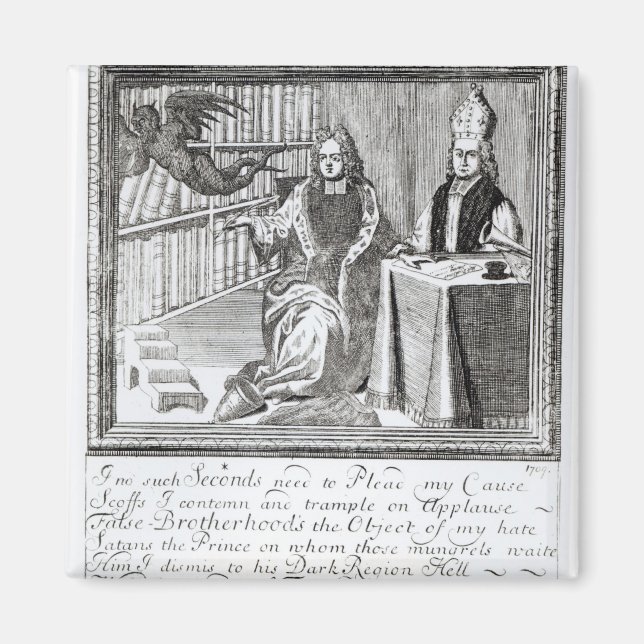 1709.
I no such Seconds* need to Plead my Cause
Scoffs I contemn and trample on Applause ~
False-Brotherhoods the Object of my hate
Satans the Prince on whom those mungrels waite
Him I dismis to his Dark Region Hell ~